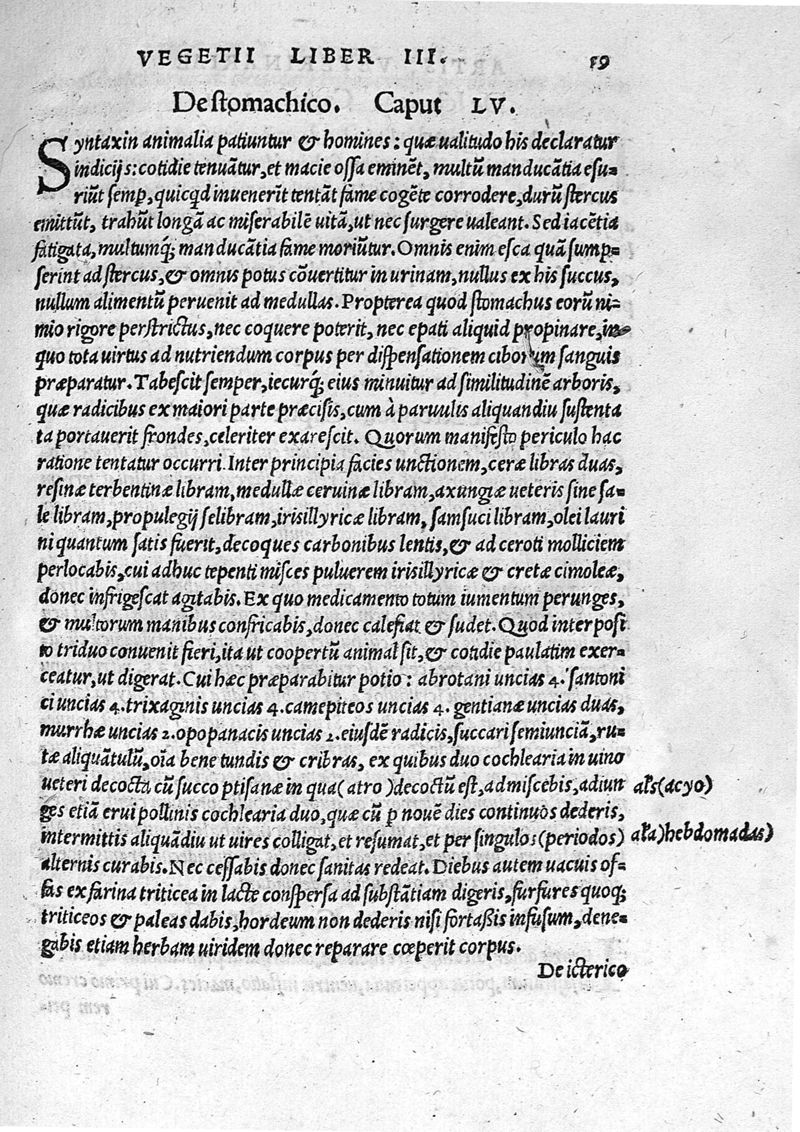 VEGETII LIBER III. 59
De stomachico. Caput LV.
Syntaxin animalia patiuntur & homines: quæ ualitudo his declaratur
indicijs: cotidie tenuãtur, et macie ossa eminẽt, multũ manducãtia esu-
riũt semp, quicqd inuenerit tentãt fame cogẽte corrodere, durũ stercus
emittũt, trahũt longã ac miserabilẽ uitã, ut nec surgere ualeant. Sed iacẽtia
fatigata, multumq; manducãtia fame moriũtur. Omnis enim esca quã sump-
serint ad stercus, & omnis potus cõuertitur in urinam, nullus ex his succus,
nullum alimentũ peruenit ad medullas. Propterea quod stomachus eorũ ni-
mio rigore perstrictus, nec coquere poterit, nec epati aliquid propinare, in
quo tota uirtus ad nutriendum corpus per dispensationem ciborum sanguis
præparatur. Tabescit semper, iecurq; eius minuitur ad similitudinẽ arboris,
quæ radicibus ex maiori parte præcisis, cum à paruulis aliquandiu sustenta
ta portauerit frondes, celeriter exarescit. Quorum manifesto periculo hac
ratione tentatur occurri. Inter principia facies unctionem, ceræ libras duas,
resinæ terbentinæ libram, medullæ ceruinæ libram, axungiæ ueteris sine sa-
le libram, propulegij selibram, irisillyricæ libram, samsuci libram, olei lauri
ni quantum satis fuerit, decoques carbonibus lentis, & ad ceroti molliciem
perlocabis, cui adhuc tepenti misces puluerem irisillyricæ & cretæ cimoleæ,
donec infrigescat agitabis. Ex quo medicamento totum iumentum perunges,
& multorum manibus confricabis, donec calefiat & sudet. Quod interposi
to triduo convenit fieri, ita ut coopertũ animal sit, & cotidie paulatim exer-
ceatur, ut digerat. Cui hæc præparabitur potio: abrotani uncias 4. santoni
ci uncias 4. trixaginis uncias 4. camepiteos uncias 4. gentianæ uncias duas,
murrhæ uncias 2. opopanacis uncias 2. eiusdẽ radicis, succari semiunciã, ru-
tæ aliquãtulũ, oĩa bene tundis & cribras, ex quibus duo coclearia in uino
ueteri decocta cũ succo ptisanæ in qua (atro) decoctũ est, admiscebis, adiun als (acyo)
ges etiã erui pollinis coclearia duo, quæ cũ p nouẽ dies continuos dederis,
intermittis aliquãdiu ut uires colligat, et resumat, et per singulos (periodos) ała) hebdomadas)
alternis curabis. Nec cessabis donec sanitas redeat. Diebus autem uacuis of-
fas ex farina triticea in lacte conspersa ad substãtiam digeris, furfures quoq;
triticeos & paleas dabis, hordeum non dederis nisi fortaßis infusum, dene-
gabis etiam herbam uiridem donec reparare cœperit corpus.
De icterico